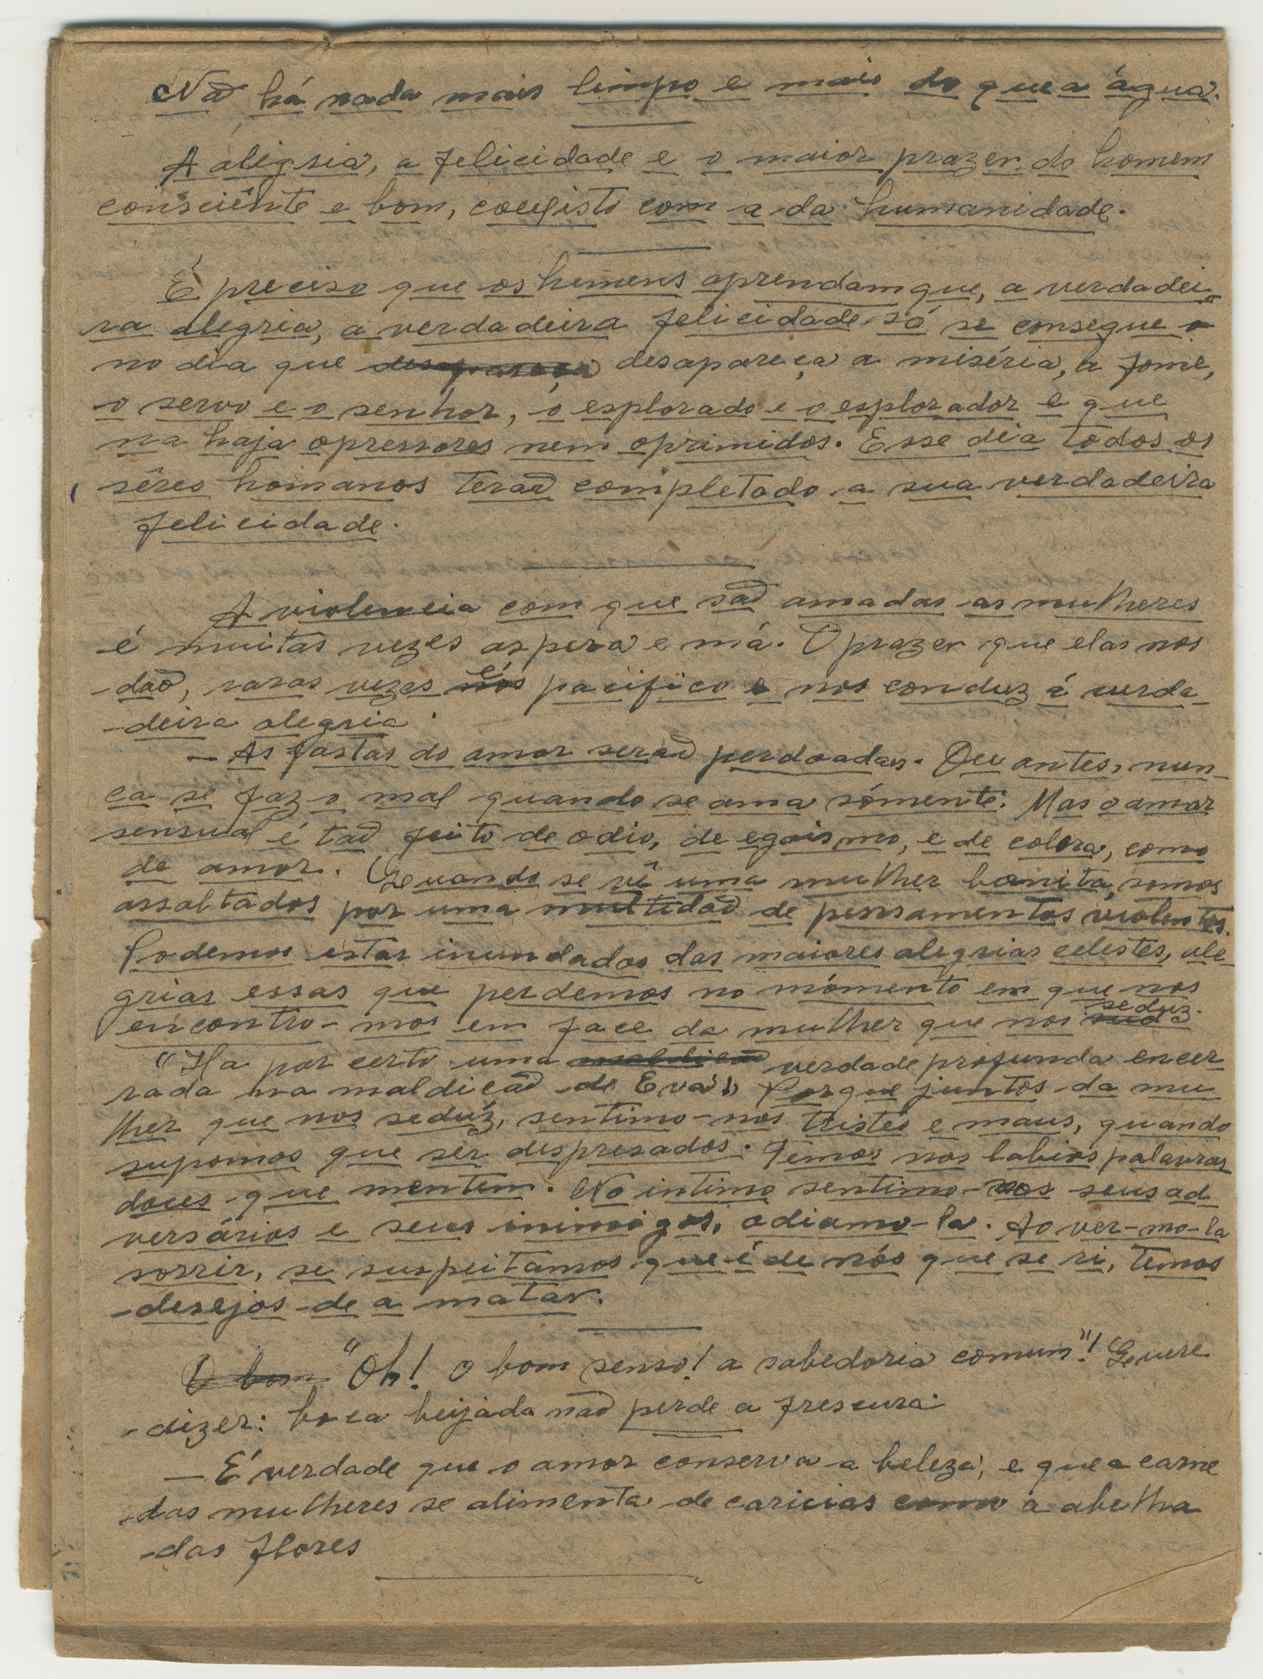 Não há nada mais limpo e mais do que a água.
A alegsia, a felicidade e o maior prazer do homem
consciênte e bom, coexisto com a da humanidade.
É preciso que os humens aprendam que, a verdadei-
ra alegria, a verdadeira felicidade só se consegue
no dia que desapareça a miséria, a fome,
o servo e o senhor, o esplorado e o esplorador e que
na haja opressores nem oprimidos. Esse dia todos os
sêres homanos terão completado a sua verdadeira
felicidade.
A violencia com que são amadas as mulheres
é muitas vezes aspera e má. O prazer que elas nos
dão, raras vezes é pacifico e nos conduz á verda-
deira alegria.
— As fastas do amor serão perdoadas. Ou antes, nun-
ca se faz o mal quando se ama sómente. Mas o amor
sensual é tão feito de odio, de egoismo, e de colera, como
de amor. Quando se vê uma mulher bonita, somos
assaltados por uma multidão de pensamentos violentos.
Podemos estar inundados das maiores alegrias celestes, ale-
grias essas que perdemos no mómento em que nos
encontro-mos em face da mulher que nos seduz.
"Ha por certo uma verdade profunda encer
rada na maldição de Eva"; Porque juntos da mu
lher que nos seduz, sentimo-nos tristes e maus, quando
supomos que ser despresados. Temos nos labios palavras
doces que mentem. No intimo sentimo-nos seus ad
versários e seus inimigos, odiamo-la. Ao ver-mo-la
sorrir, se suspeitamos que é de nós que se ri, temos
desejos de a matar.
O bom "Oh! o bom senso! a sabedoria comum"! Quere
dizer: boca beijada não perde a frescura.
— É verdade que o amor conserva a beleza, e que a carne
das mulheres se alimenta de caricias como a abelha
das flores